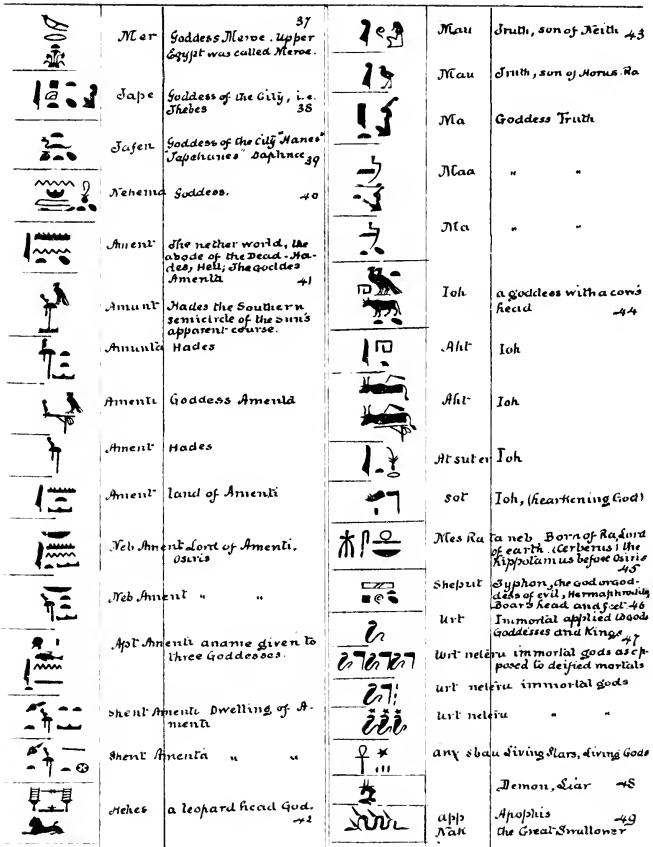 37
Mer Goddess Meroe. Upper
Egypt was called Meroe.
Tape Goddess of the City, i.e.
Thebes 38
Tafen Goddess of the City "Hanes"
"Tapehanes" Daphnce 39
Nehema Goddess. 40
Ament The nether world, the
abode of the Dead - Ha-
des, Hell; The goddes
Amenta 41
Amunt Hades the Southern
semicircle of the sun's
apparent course.
Amunta Hades
Amenti Goddess Amenta
Ament Hades
Ament land of Amenti
Neb Ament Lord of Amenti,
Osiris
Neb Ament " "
Apt Amenti a name given to
three Goddesses.
Shent Amenti Dwelling of A-
menti
Shent Amenta " "
Hehes a leopard head God.
42
Mau Truth, son of Neith 43
Mau Truth, son of Horus-Ra
Ma Goddess Truth
Maa " "
Ma " "
Ioh a goddess with a cow's
head 44
Aht Ioh
Aht Ioh
At suter Ioh
sot Ioh, (hearkening God)
Mes Ra ta neb Born of Ra, Lord
of earth. (Cerberus) the
hippotamus before Osiris
45
Sheput Typhon, the god or god-
dess of evil, Hermaphrodite,
Boar's head and feet 46
Urt Immortal applied to gods
Goddesses and Kings 47
Urt neteru immortal gods as op-
posed to deified mortals
urt neteru immortal gods
urt neteru " "
anx sbau Living Stars, Living Gods
Demon, Liar 48
app Apophis 49
Nak the Great Swallower